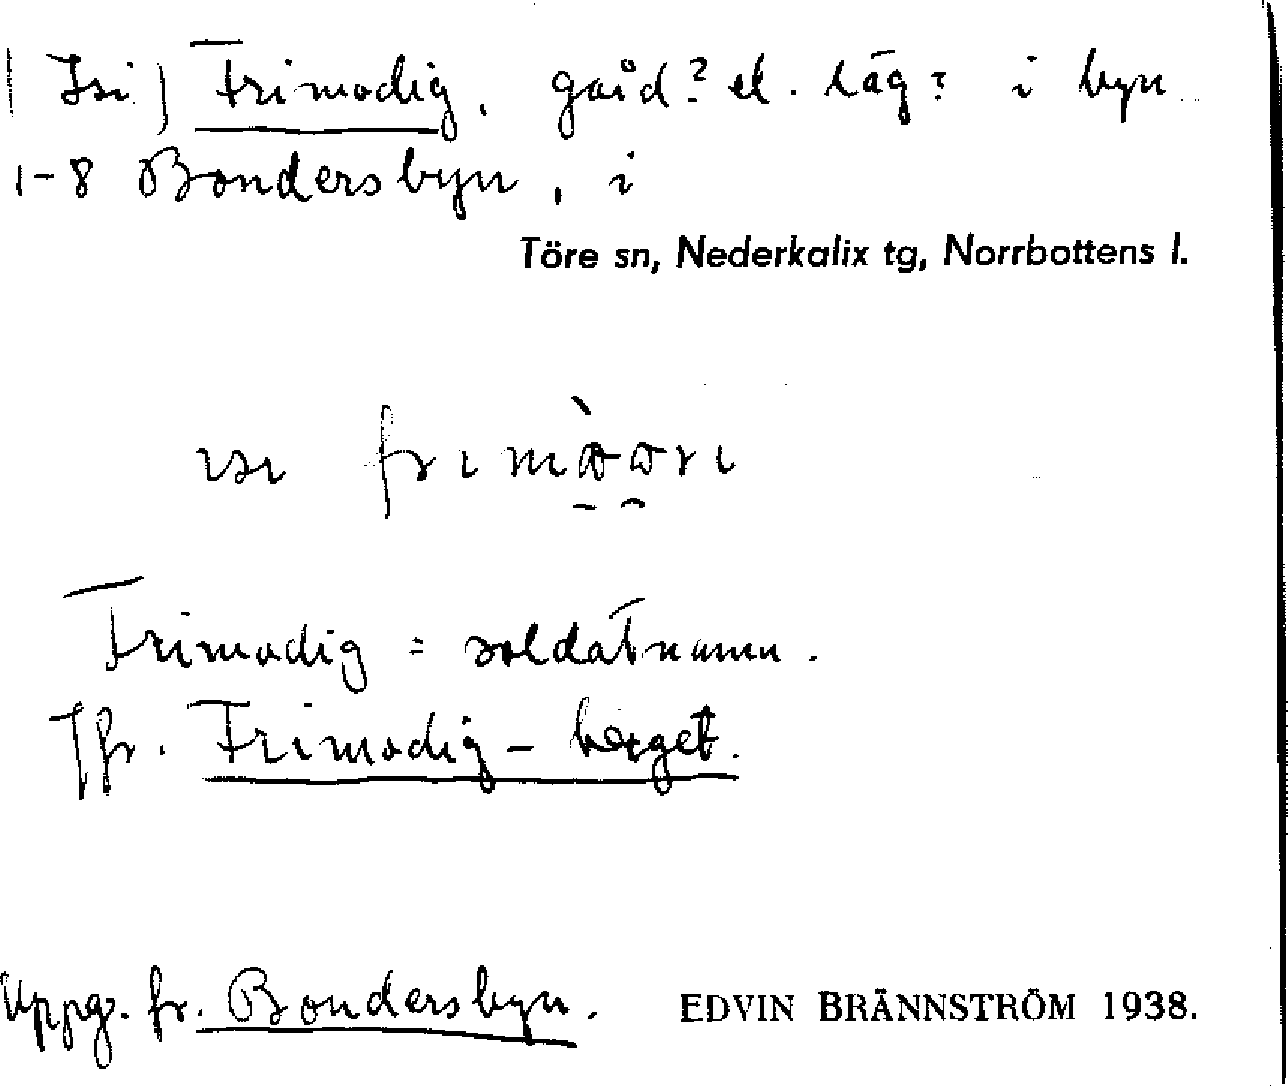 (Isi) Frimodig, gård? el. läg? i byn
1-8 Bondersbyn, i
Töre sn, Nederkalix tg, Norrbottens l.
ɪsɪ
Frimodig = soldatnamn.
Jfr. Frimodig-berget.
Uppg. fr. Bondersbyn. EDVIN BRÄNNSTRÖM 1938.